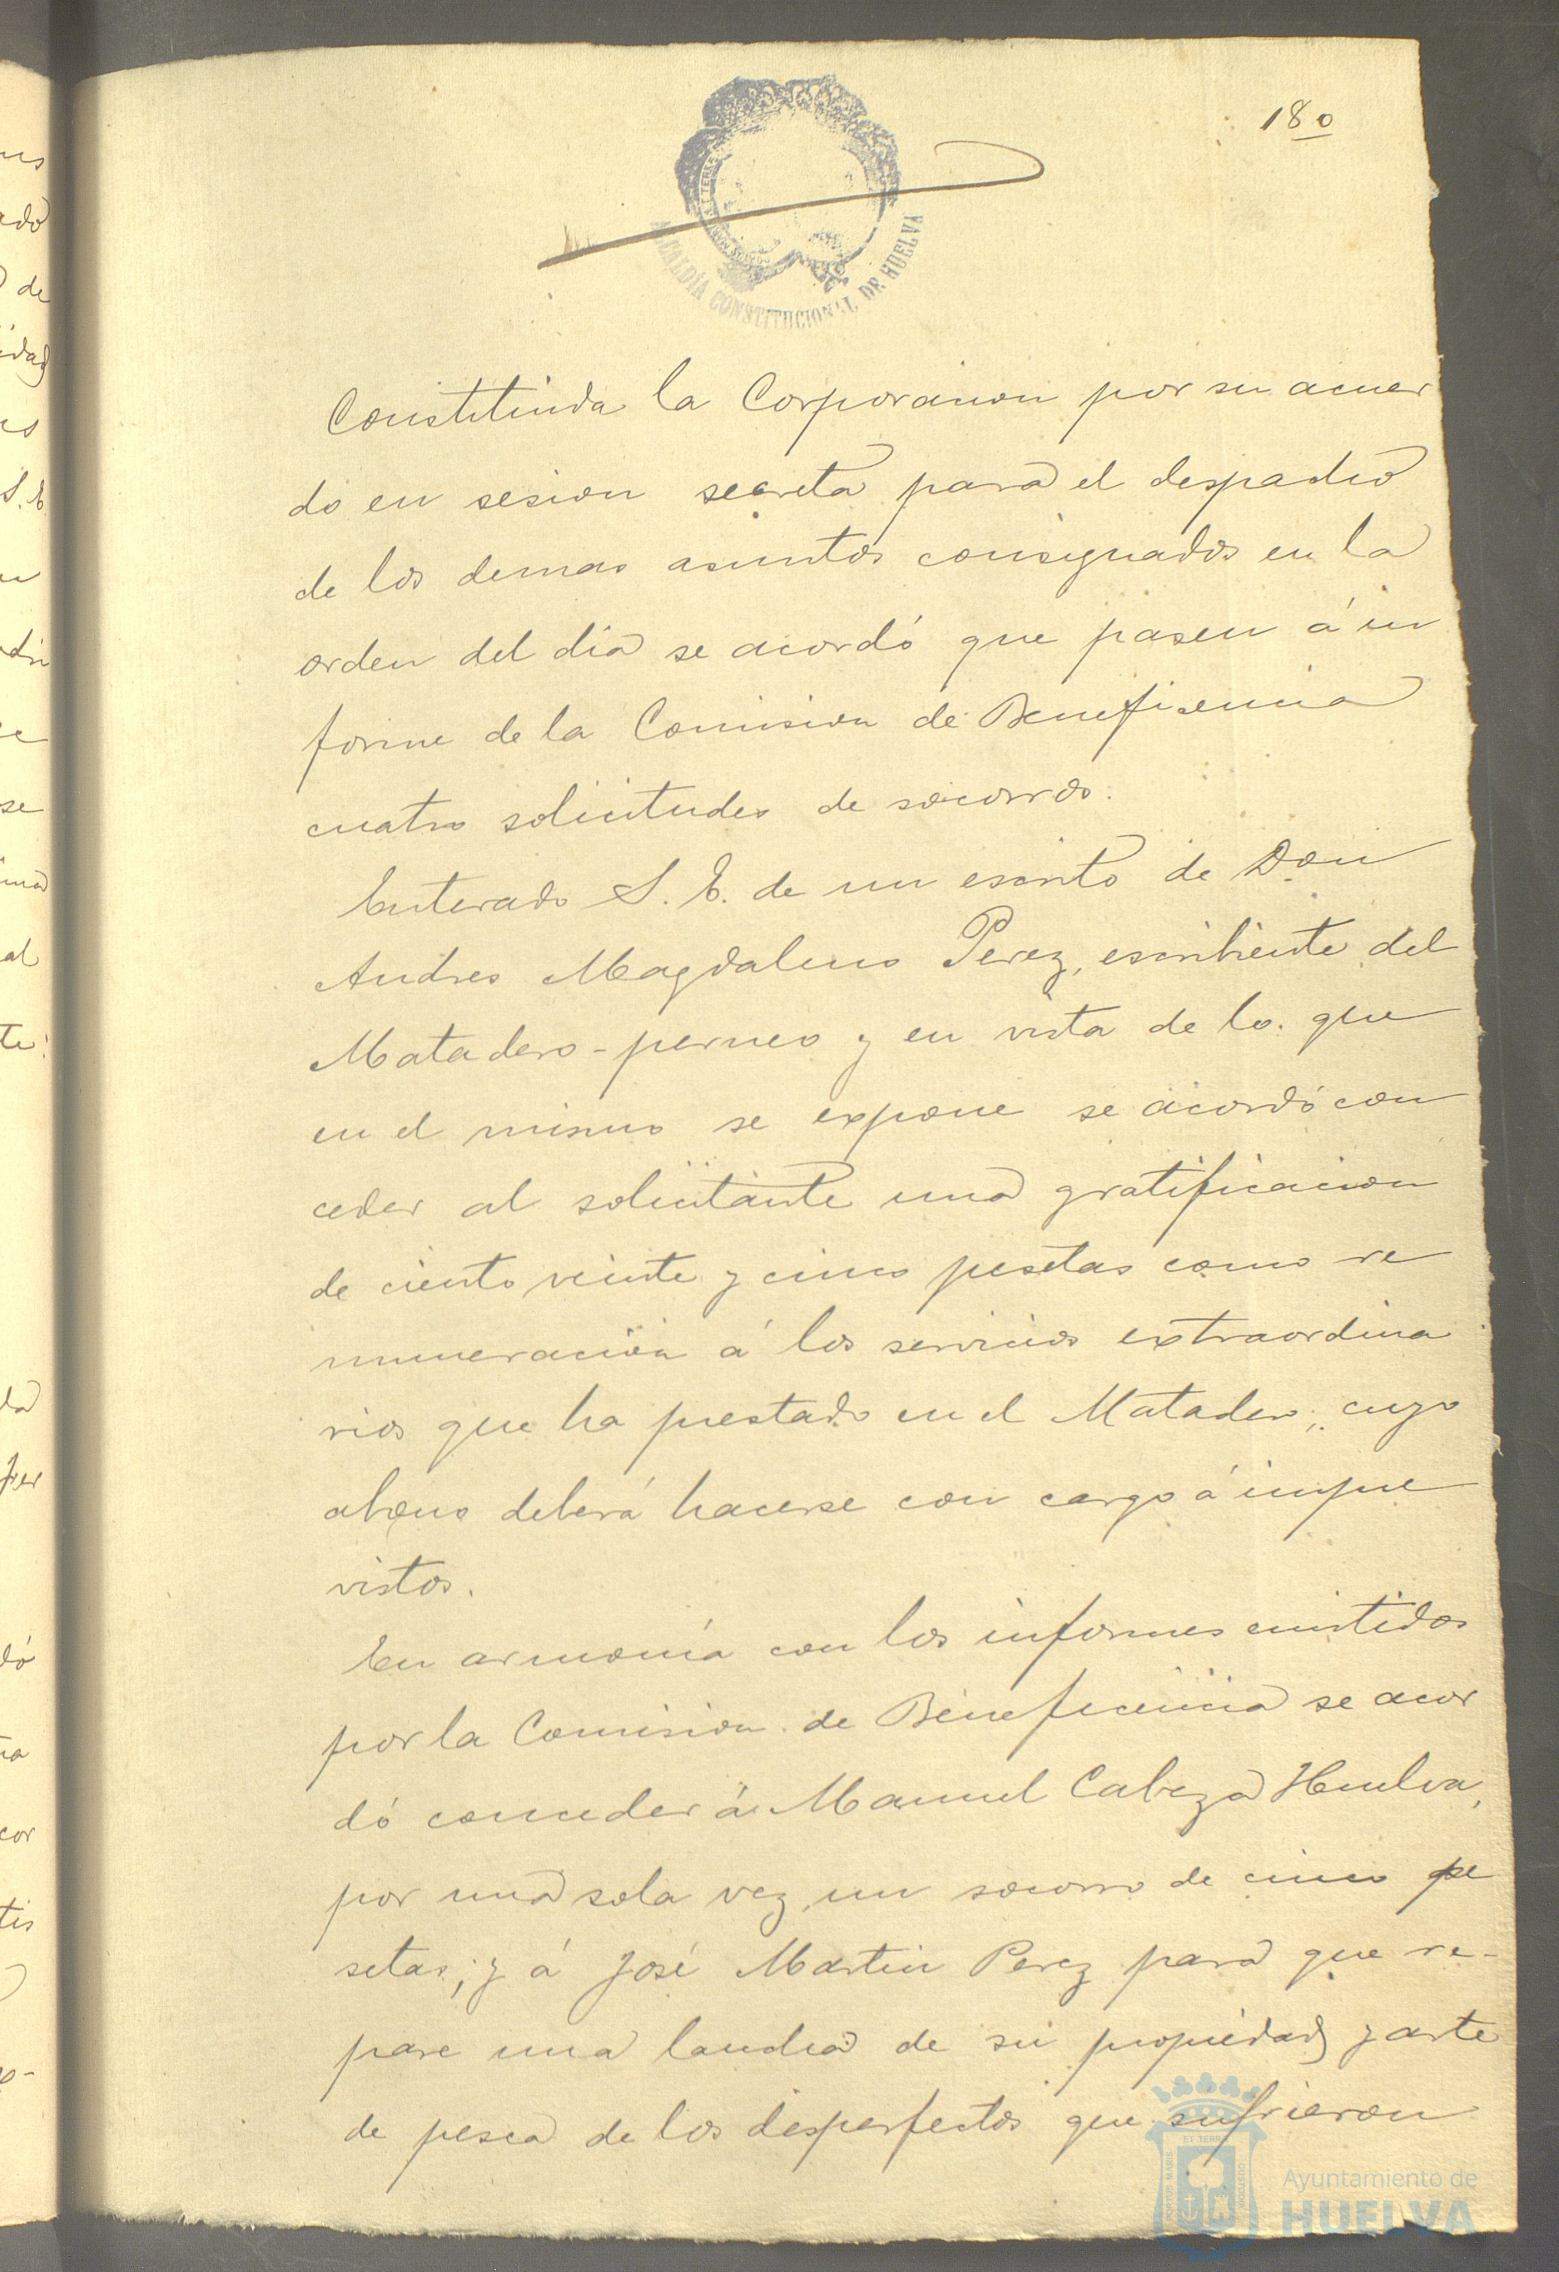 180
ET TERRE
ALCALDÍA CONSTITUCIONAL DE HUELVA
Constituida la Corporacion por su acuer
do en sesion secreta para el despacho
de los demas asuntos consignados en la
orden del dia se acordó que pasen á in
forme de la Comision de Beneficencia
cuatro solicitudes de socorros.
Enterado S. E. de un escrito de Don
Andres Magdaleno Perez, escribiente del
Matadero-perneo y en vista de lo que
en el mismo se expone se acordó con
ceder al solicitante una gratificacion
de ciento veinte y cinco pesetas como re
muneración á los servicios extraordina
rios que ha prestado en el Matadero; cuyo
abono deberá hacerse con cargo á impre
vistos.
En armonía con los informes emitidos
por la Comision de Beneficencia se acor
dó conceder á Manuel Cabeza Huelva,
por una sola vez, un socorro de cinco pe
setas; y á José Martin Perez para que re-
pare una lancha de su propiedad y arte
de pesca de los desperfectos que sufrieron
Ayuntamiento de
HUELVA